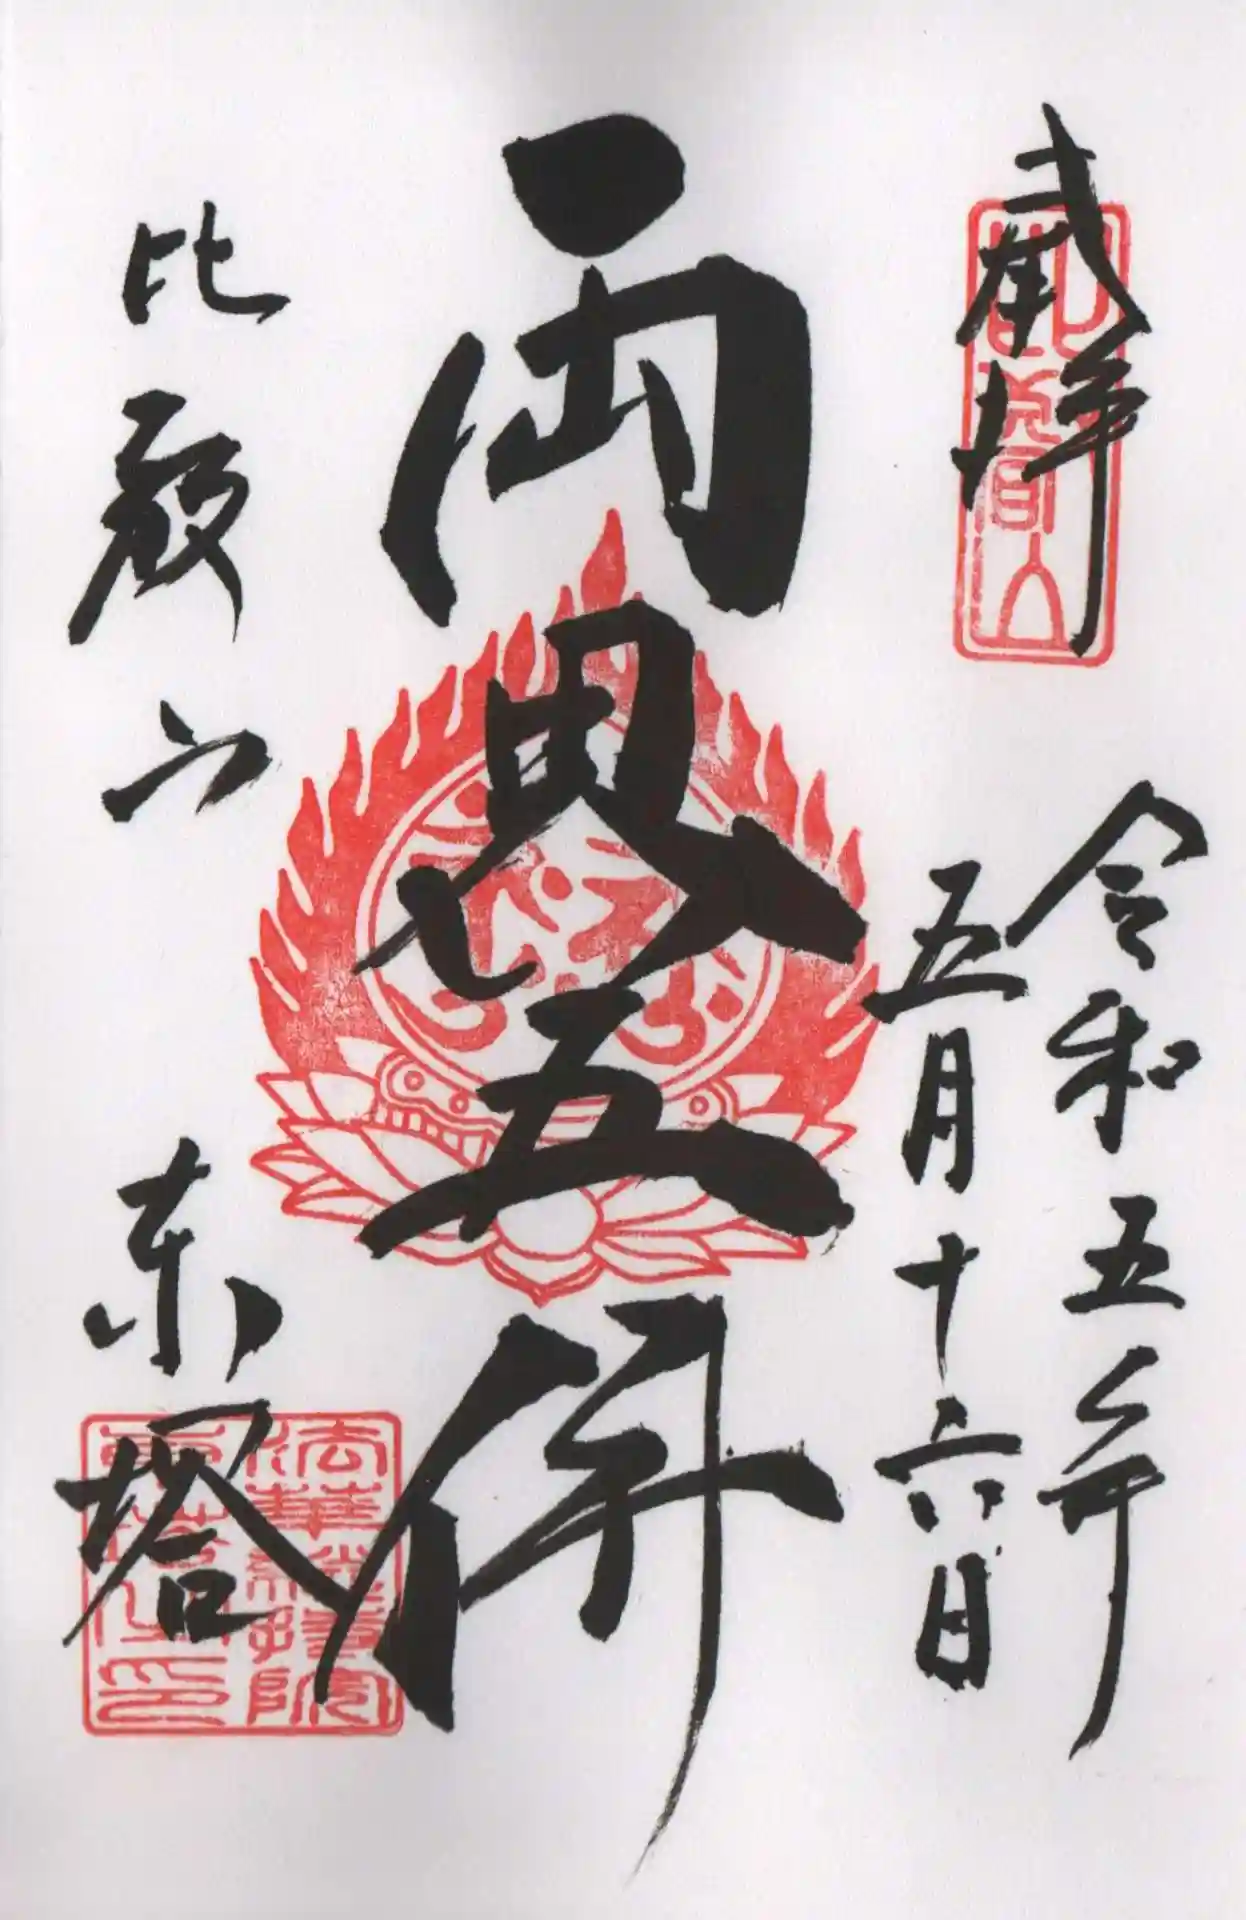 奉拝
令和五年
五月十六日
両界五佛
比叡山 東塔